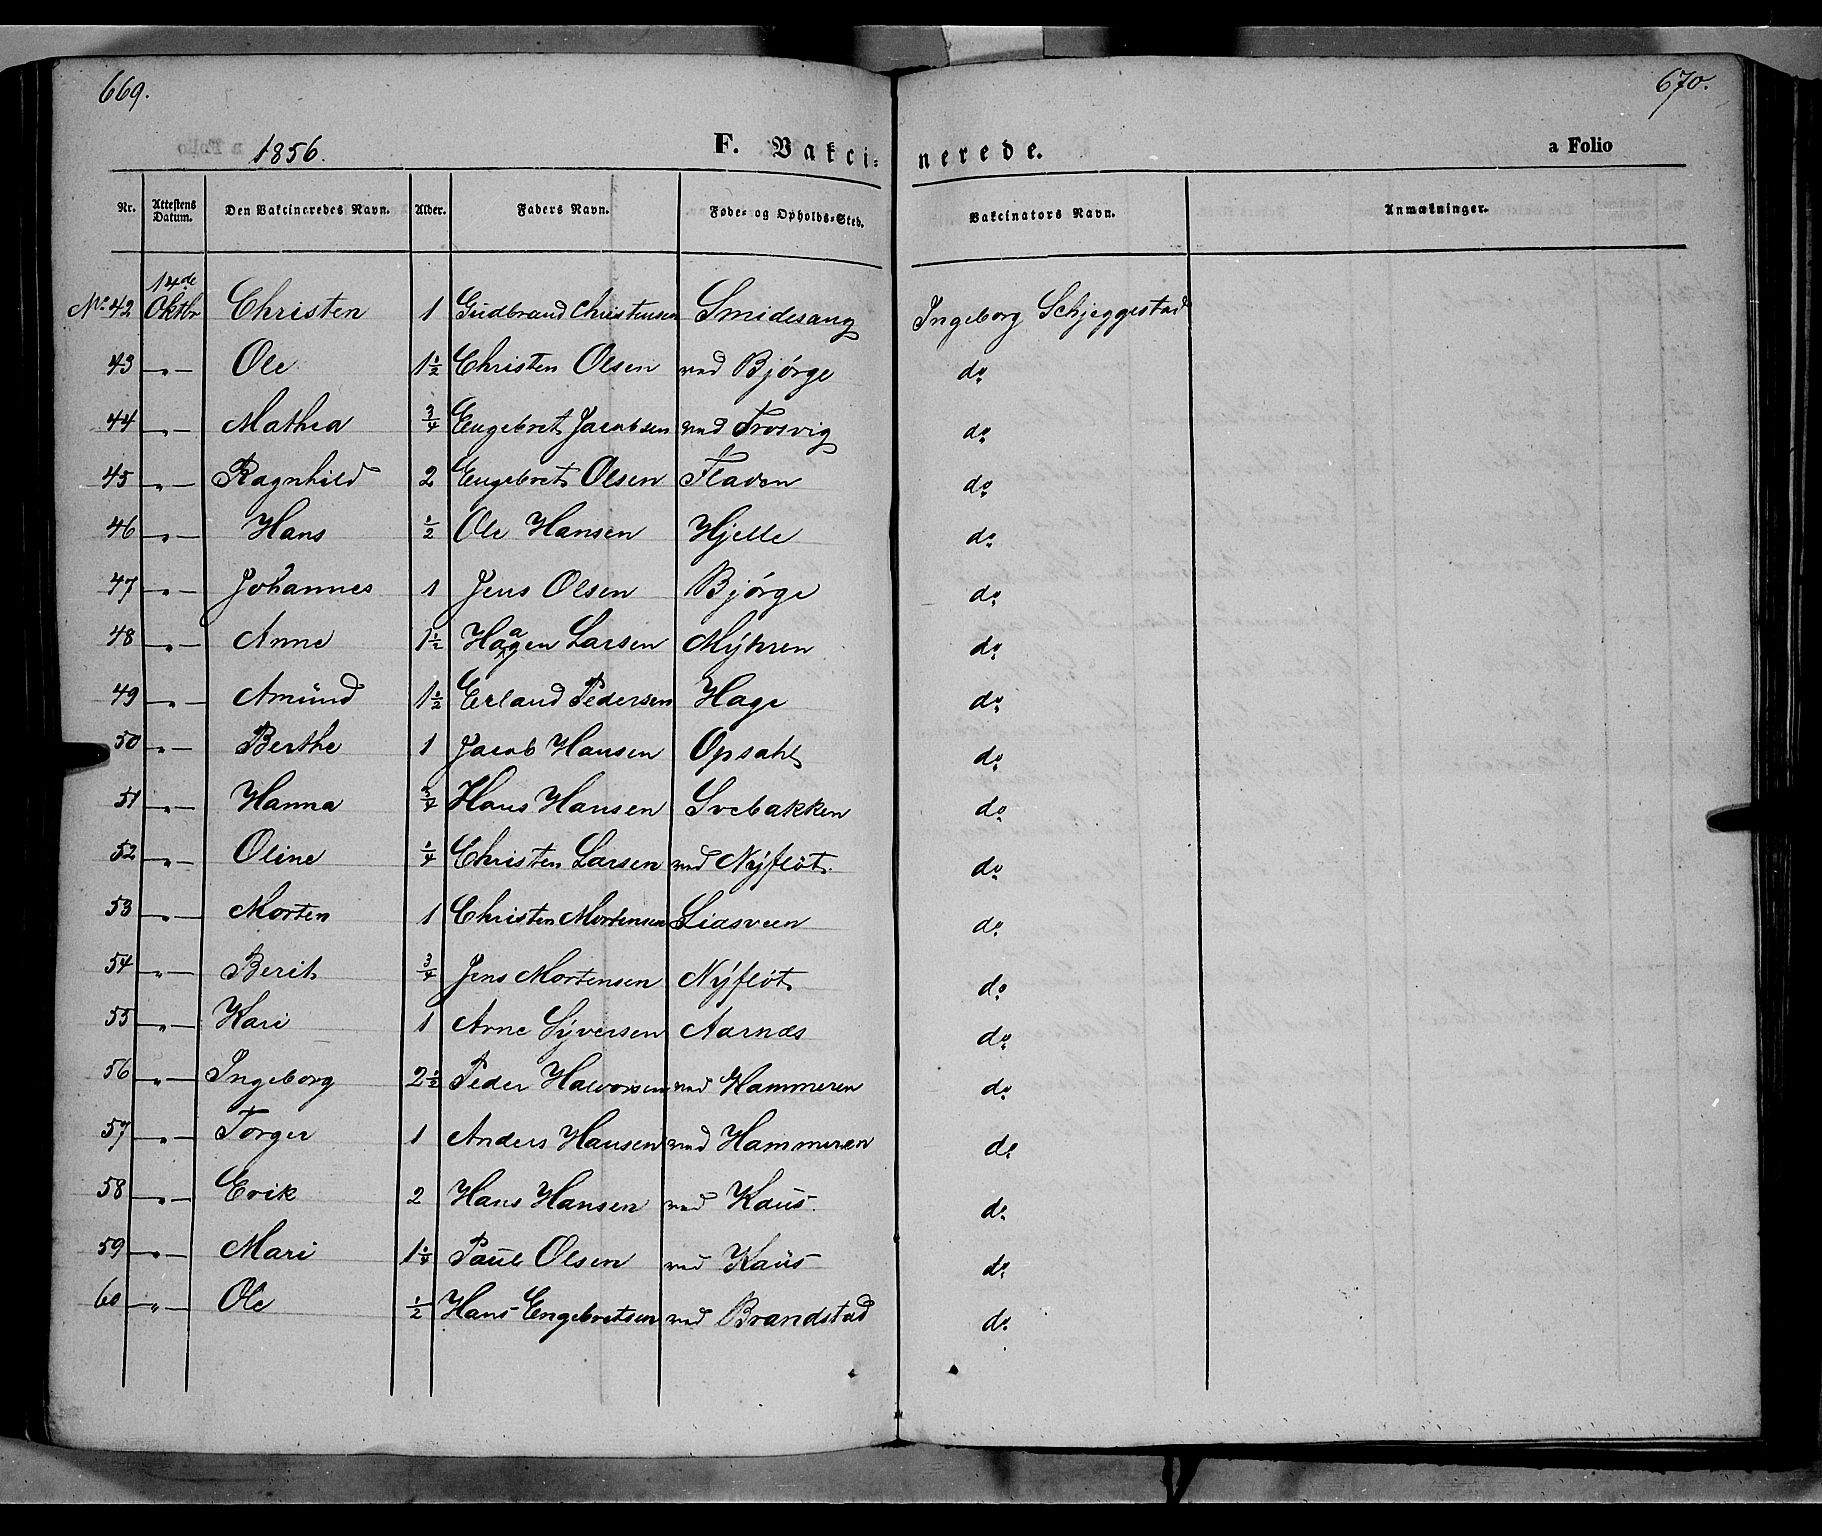 669.
670.
1856.
F. Vakci-
nerede.
a Folio
Nr. Attestens Datum. Den Vakcineredes Navn. Alder. Faders Navn. Føde- og Opholds-Sted. Vakcinators Navn. Anmækninger.
14de
No 42 Oktbr Christen 1 Gudbrand Christensen Smidesang Ingeborg Schjeggestad
43 -"- Ole 1 1/2 Christen Olsen ved Bjørge do
44 -"- Mathea 3/4 Engebret Jacobsen ved Trosvig do
45 -"- Ragnhild 2 Engebret Olsen Fladen do
46 -"- Hans 1/2 Ole Hansen Hjelle do
47 -"- Johannes 1 Jens Olsen Bjørge do
48 -"- Anne 1 1/2 Haagen Larsen Myhren do
49 -"- Amund 1 1/2 Erland Pedersen Hage do
50 -"- Berthe 1 Jacob Hansen Opsahl do
51 -"- Hanna 3/4 Hans Hansen Svebakken do
52 -"- Oline 1/4 Christen Larsen ved Nyfløt. do
53 -"- Morten 1 Christen Mortensen Liasveen do
54 -"- Berit 3/4 Jens Mortensen Nyfløt do
55 -"- Kari 1 Arne Syversen Aarnæs do
56 -"- Ingeborg 2 1/2 Peder Halvorsen ved Hammeren do
57 -"- Torger 1 Anders Hansen ved Hammeren do
58 -"- Erik 2 Hans Hansen ved Kaus. do
59 -"- Mari 1 1/4 Paul Olsen ved Kaus do
60 -"- Ole 1/2 Hans Engebretsen ved Brandstad do